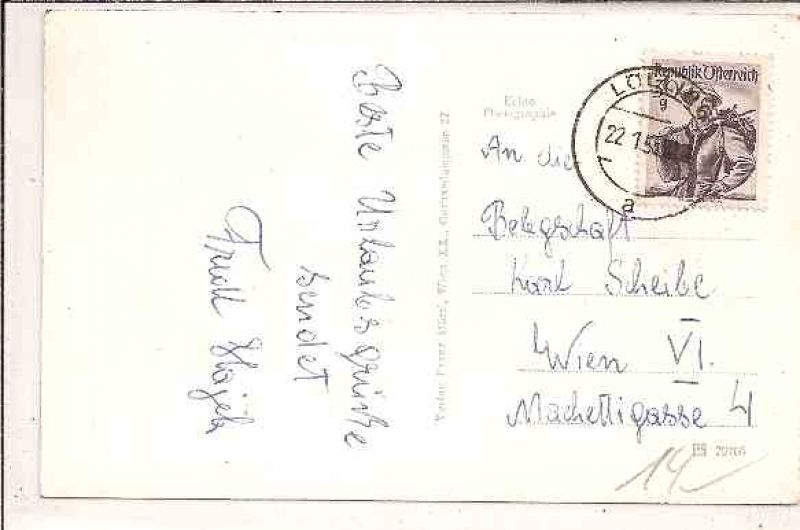 Beste Urlaubsgrüße
sendet
Trude Hajek
Echte
Photographie
Republik Österreich
22.1.5
a
An die
Belegschaft
Karl Scheibe
Wien VI.
Machettigasse 4
14